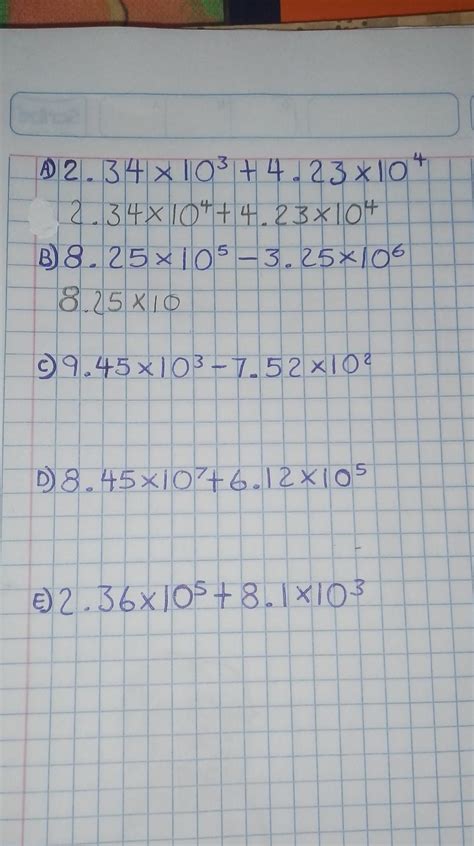 A) 2.34×10³+4.23×10⁴
2.34×10⁴+4.23×10⁴
B) 8.25×10⁵-3.25×10⁶
8.25×10
C) 9.45×10³-7.52×10²
D) 8.45×10⁷+6.12×10⁵
E) 2.36×10⁵+8.1×10³